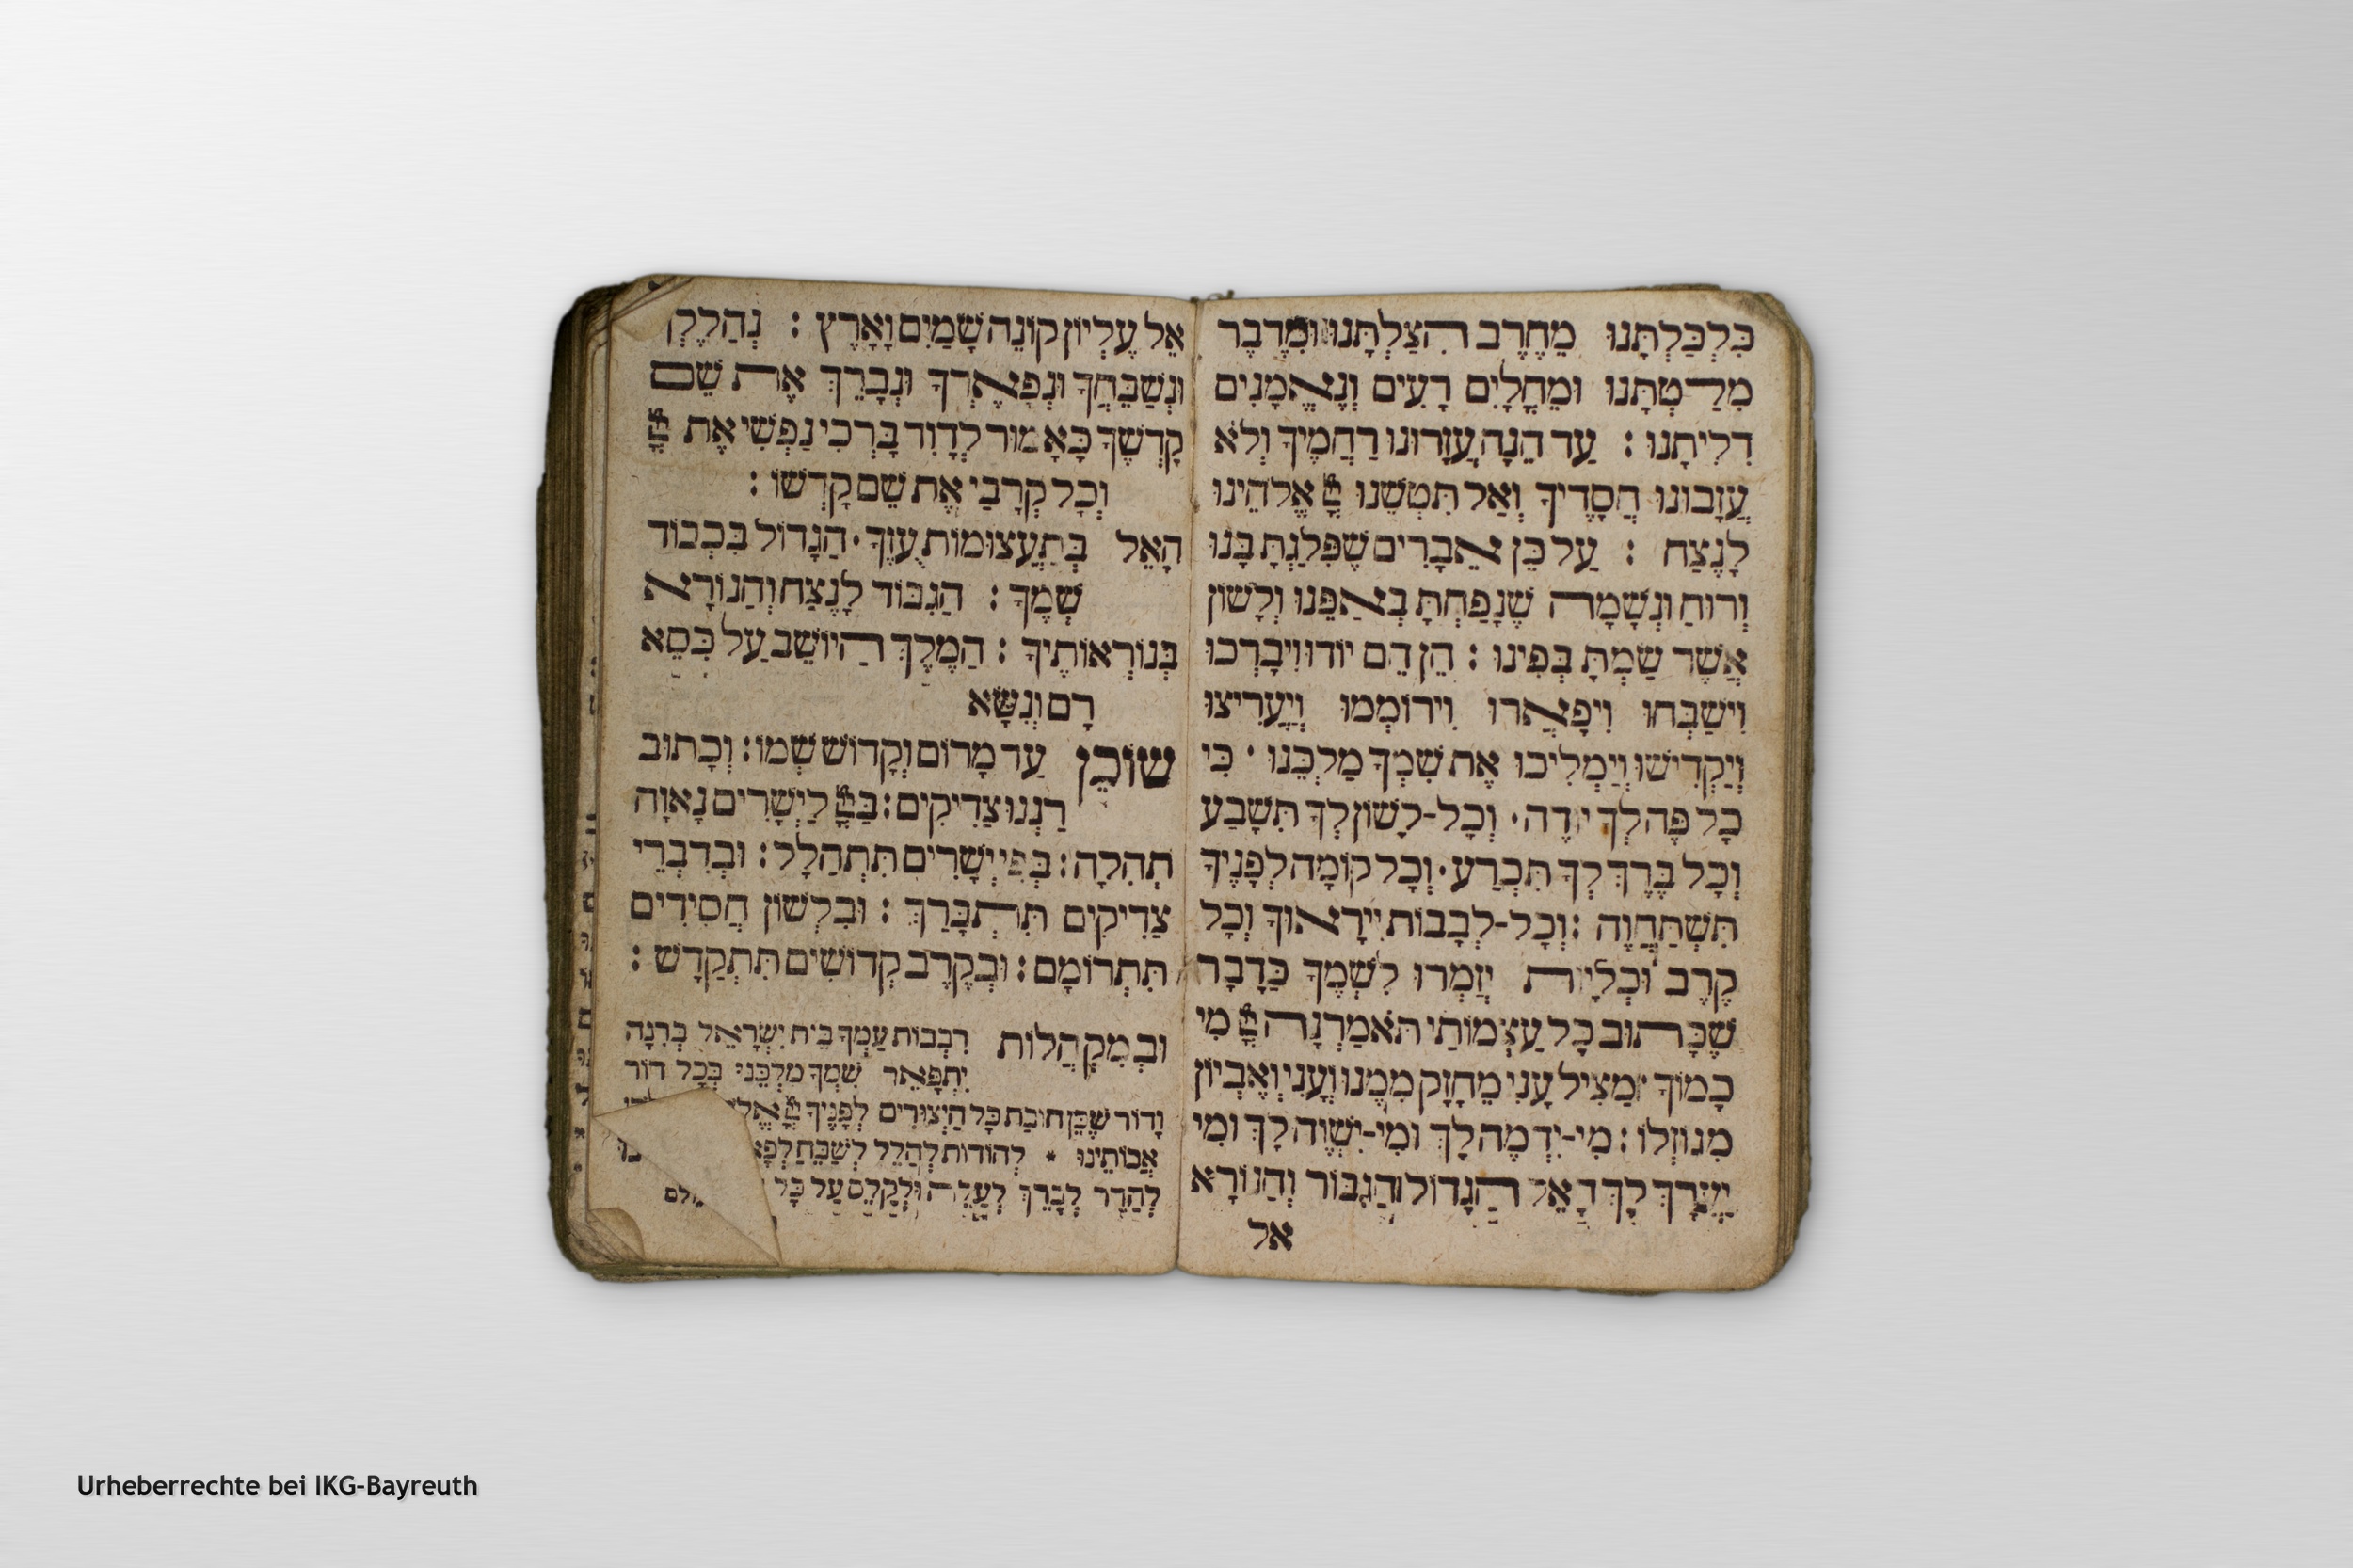 כִּלְכַּלְתָּנוּ מֵחֶרֶב הִצַלְתָּנוּ וּמִדֶבֶר
מִלַּטְתָּנוּ וּמֵחֳלָיִם רָעִים וְנֶאֱמָנִים
דִלִיתָנוּ : עַד הֵנָה עֲזָרוּנוּ רַחֲמֶיךָ וְלֹא
עֲזָבוּנוּ חֲסָדֶיךָ וְאַל תִּטְשֵׁנוּ אֱלֹהֵינוּ
לָנֶצַח : עַל כֵּן אֵבָרִים שֶׁפִּלַגְתָּ בָּנוּ
וְרוּחַ וּנְשָׁמָה שֶׁנָפַחְתָּ בְאַפֵּנוּ וְלָשׁוֹן
אֲשֶׁר שַׂמְתָּ בְּפִינוּ : הֵן הֵם יוֹדוּ וִיבָרְכוּ
וִישַׁבְּחוּ וִיפָאֲרוּ וִירוֹמְמוּ וְיַעֲרִיצוּ
וְיַקְדִישׁוּ וְיַמְלִיכוּ אֶת שִׁמְךָ מַלְכֵּנוּ · כִּי
כָל פֶּה לְךָ יוֹדֶה · וְכָל-לָשׁוֹן לְךָ תִּשָׁבַע
וְכָל בֶּרֶךְ לְךָ תִּכְרַע · וְכָל קוֹמָה לְפָנֶיךָ
תִּשְׁתַּחֲוֶה : וְכָל-לְבָבוֹת יִירָאוּךָ וְכָל
קֶרֶב וּכְלָיוֹת יְזַמְרוּ לִשְׁמֶךָ כַּדָבָר
שֶׁכָּתוּב כָּל עַצְמוֹתַי תֹּאמַרְנָה מִי
כָמוֹךָ מַצִיל עָנִי מֵחָזָק מִמֶנוּ וְעָנִי וְאֶבְיוֹן
מִגוֹזְלוֹ : מִי-יִדְמֶה לָּךְ וּמִי-יִשְׁוֶה לָךְ וּמִי
יַעֲרָךְ לָךְ הָאֵל הַגָדוֹל הַגִבּוֹר וְהַנוֹרָא
אל
אֵל עֶלְיוֹן קוֹנֵה שָׁמַיִם וָאָרֶץ : נְהַלֶלְךָ
וּנְשַׁבֵּחֲךָ וּנְפָאֶרְךָ וּנְבָרֵךְ אֶת שֵׁם
קָדְשֶׁךָ כָּאָמוּר לְדָוִד בָּרְכִי נַפְשִׁי אֶת
וְכָל קְרָבַי אֶת שֵׁם קָדְשׁוֹ :
הָאֵל בְּתַעֲצוּמוֹת עֻוֶּךָ · הַגָדוֹל בִּכְבוֹד
שְׁמֶךָ : הַגִבּוֹר לָנֶצַח וְהַנוֹרָא
בְּנוֹרְאוֹתֶיךָ : הַמֶלֶךְ הַיוֹשֵׁב עַל כִּסֵא
רָם וְנִשָׂא
שׁוֹכֵן עַד מָרוֹם וְקָדוֹשׁ שְׁמוֹ : וְכָתוּב
רַנְנוּ צַדִיקִים : לַיְשָׁרִים נָאוָה
תְהִלָה : בְּפִי יְשָׁרִים תִּתְהַלָל : וּבְדִבְרֵי
צַדִיקִים תִּתְבָּרַךְ : וּבִלְשׁוֹן חֲסִידִים
תִּתְרוֹמָם : וּבְקֶרֶב קְדוֹשִׁים תִּתְקַדָשׁ :
וּבְמִקְהֲלוֹת רִבְבוֹת עַמְךָ בֵּית יִשְׂרָאֵל בְּרִנָה
יִתְפָּאֵר שִׁמְךָ מַלְכֵּנוּ בְּכָל דוֹר
וָדוֹר שֶׁכֵּן חוֹבַת כָּל הַיְצוּרִים לְפָנֶיךָ
אֲבוֹתֵינוּ * לְהוֹדוֹת לְהַלֵל לְשַׁבֵּחַ
לְהַדֵר לְבָרֵךְ לְעַלֵה וּלְקַלֵס עַל כָּל
Urheberrechte bei IKG-Bayreuth